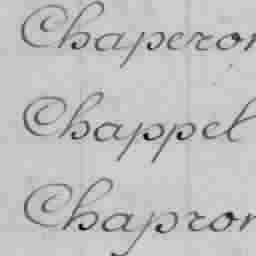 Chaperon
Chappel
Chapron